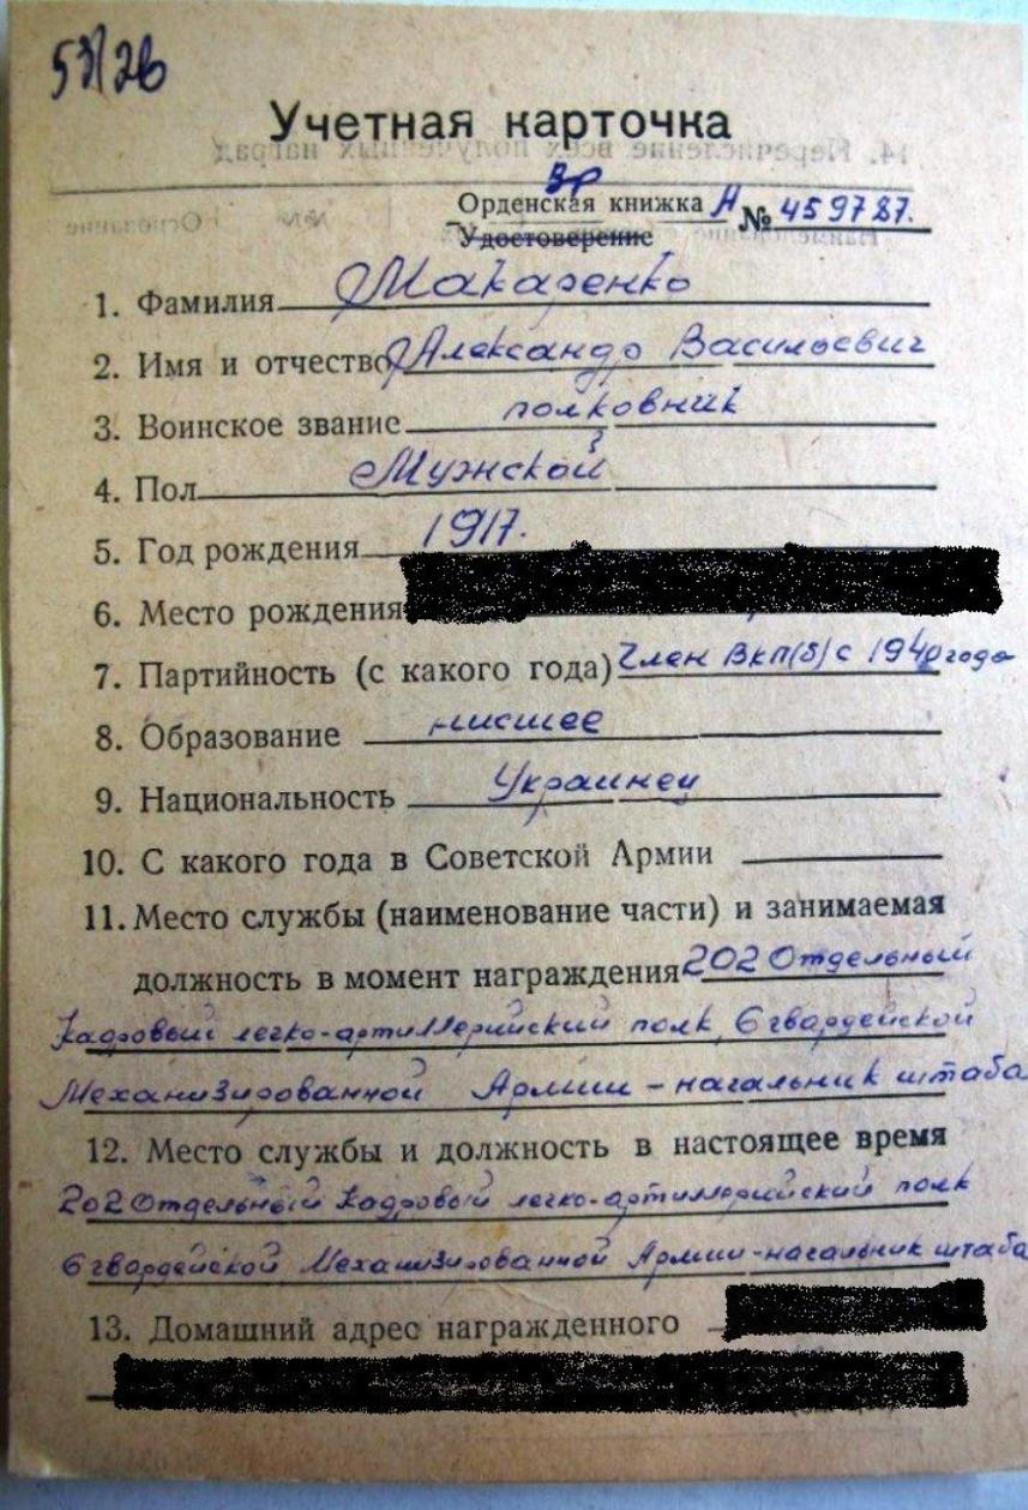 Учетная карточка
Вр
Орденская книжка А № 459787.
Удостоверение
1. Фамилия Макаренко
2. Имя и отчество Александр Васильевич
3. Воинское звание полковник
4. Пол Мужской
5. Год рождения 1917.
6. Место рождения
7. Партийность (с какого года) Член ВКП(б) с 1940 года
8. Образование
9. Национальность Украинец
10. С какого года в Советской Армии
11. Место службы (наименование части) и занимаемая
должность в момент награждения 202 Отдельный
Кадровый легко-артиллерийский полк, 6 гвардейской
Механизированной Армии - начальник штаба
12. Место службы и должность в настоящее время
202 Отдельный Кадровый легко-артиллерийский полк
6 гвардейской Механизированной Армии - начальник штаба
13. Домашний адрес награжденного